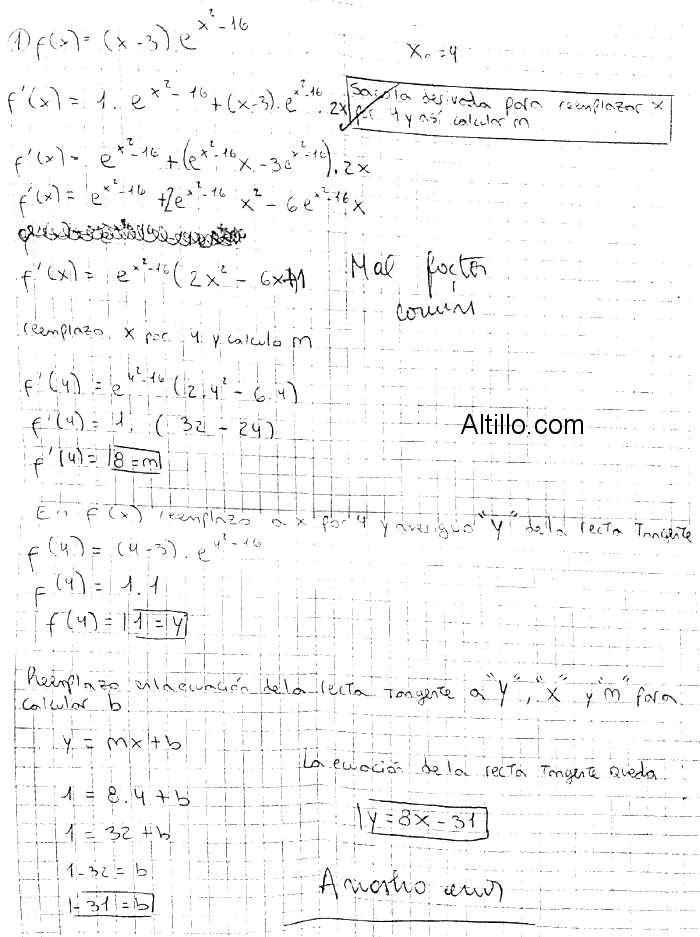 1) f(x) = (x-3).e^(x²-16)
x₀ = 4
f'(x) = 1. e^(x²-16) + (x-3).e^(x²-16). 2x
Saco la derivada para reemplazar x
por 4 y así calcular m
f'(x) = e^(x²-16) + (e^(x²-16) x - 3e^(x²-16)).2x
f'(x) = e^(x²-16) + 2e^(x²-16) x² - 6e^(x²-16) x
f'(x) = e^(x²-16) (2x² - 6x+1
Mal factor
común
reemplazo x por 4 y calculo m
f'(4) = e^(4²-16) (2.4² - 6.4)
f'(4) = 1. ( 32 - 24)
f'(4) = 8 = m
Altillo.com
En f(x) reemplazo a x por 4 y averiguo "y" de la recta tangente
f(4) = (4-3). e^(4²-16)
f(4) = 1.1
f(4) = 1 = y
Reemplazo en la ecuación de la recta tangente a "y", "x" y "m" para
calcular b
y = mx + b
1 = 8.4 + b
1 = 32 + b
1-32 = b
-31 = b
La ecuación de la recta tangente queda
y = 8x - 31
Arrastro error